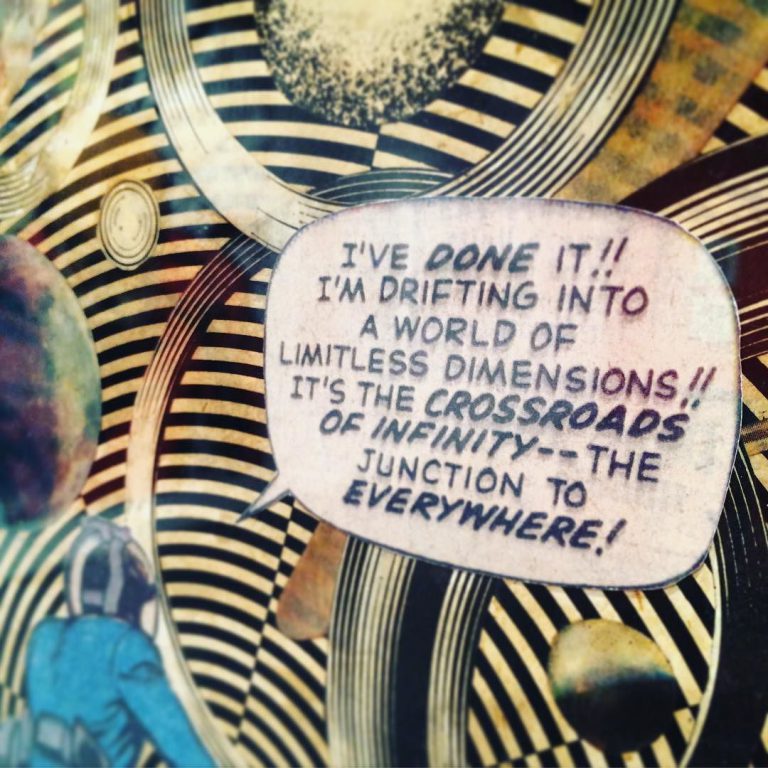 I'VE DONE IT!!
I'M DRIFTING INTO
A WORLD OF
LIMITLESS DIMENSIONS!!
IT'S THE CROSSROADS
OF INFINITY--THE
JUNCTION TO
EVERYWHERE!